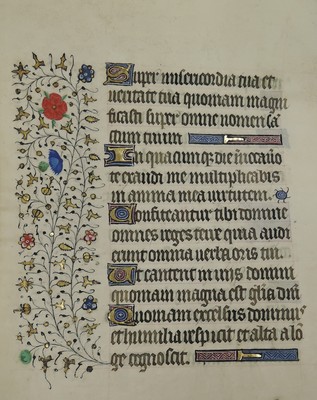 Super misericordia tua et
veritate tua quoniam magni
ficasti super omne nomen sā
ctum tuum
In quacumque die inuocauero
te exaudi me multiplicabis
in anima mea virtutem.
Confiteantur tibi domine
omnes reges terre quia audi
erunt omnia uerba oris tui.
Et cantent in uiis domini
quoniam magna est gl̄ia dn̄i
Quoniam excelsus dominus
et humilia respicit et alta a lō
ge cognoscit.